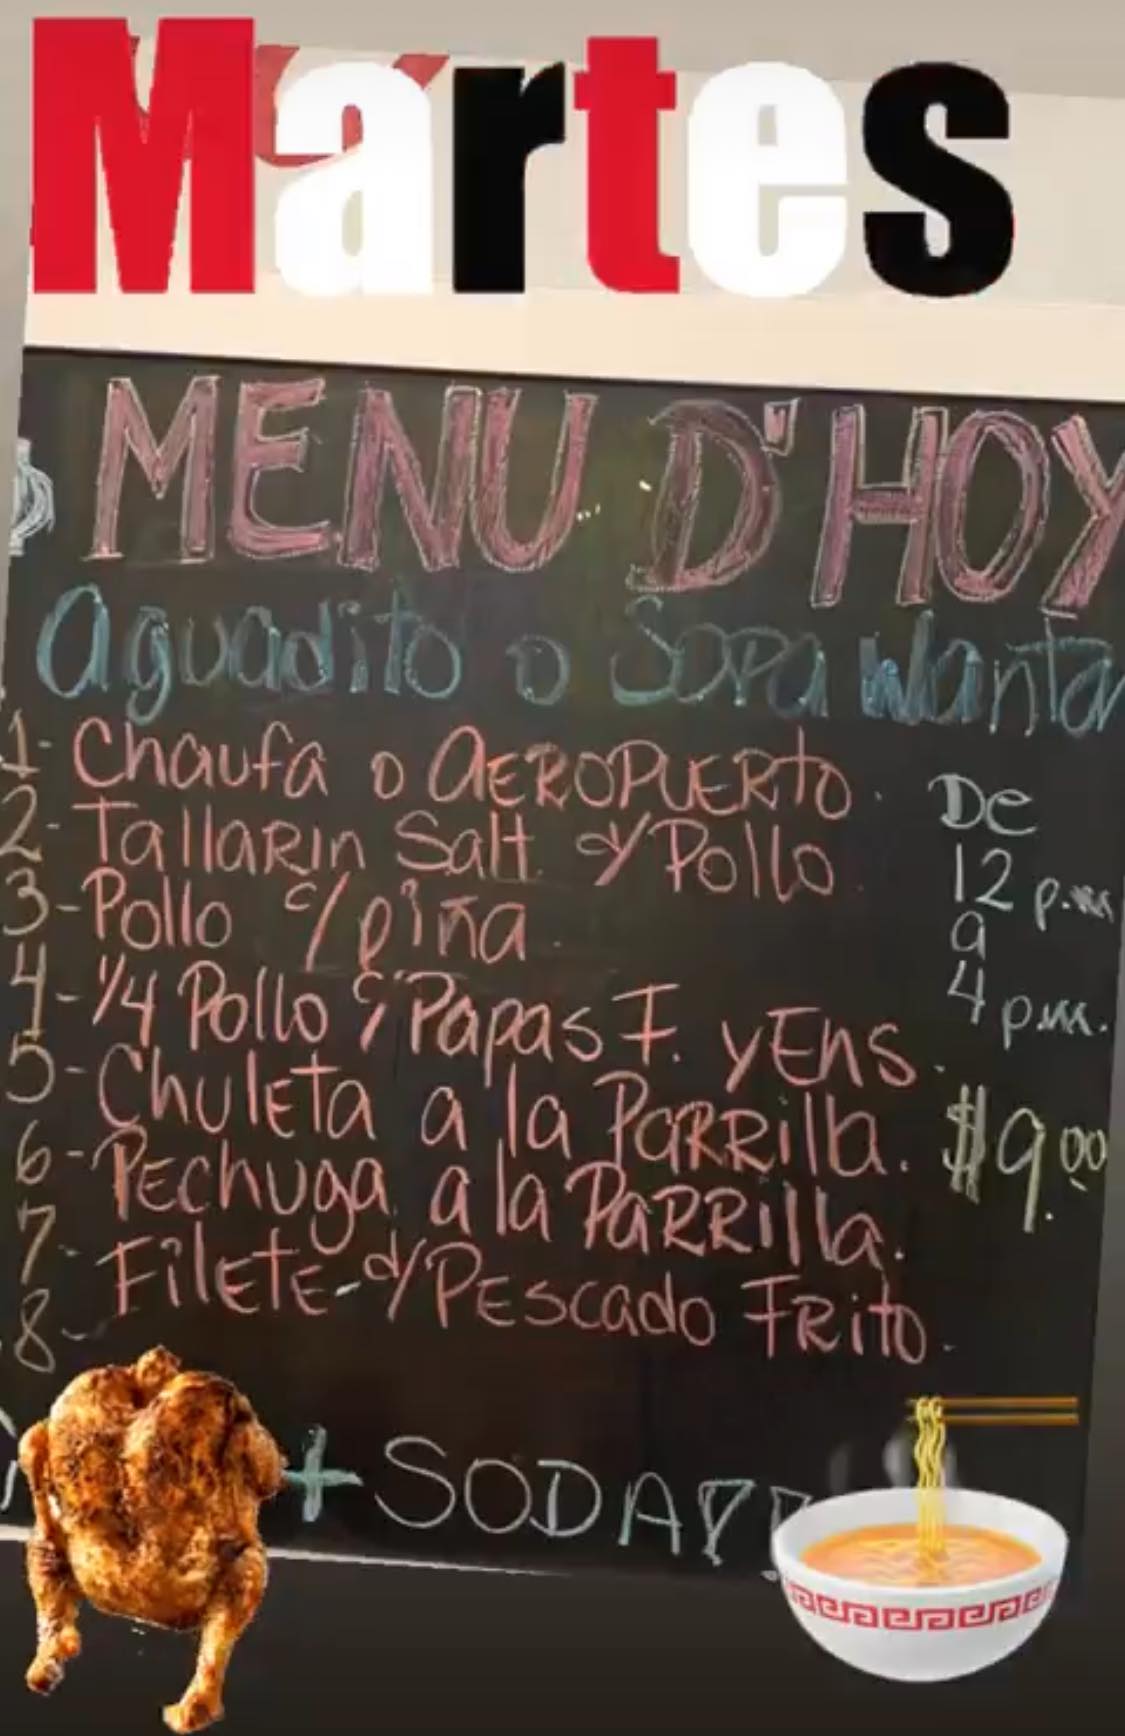 Martes
MENU D'HOY
Aguadito o Sopa Wantan
1- Chaufa o AEROPUERTO.
2- Tallarin Salt. d/Pollo.
3- Pollo c/piña.
4- 1/4 Pollo c/Papas F. y Ens.
5- Chuleta a la Parrilla.
6- Pechuga a la Parrilla.
7- Filete d/Pescado Frito.
8-
De
12 p.m
a
4 p.m.
$9.00
+ SODA